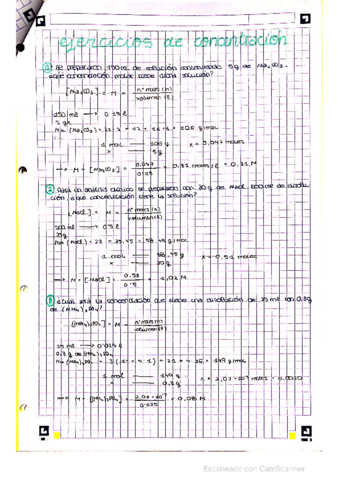 ejercicios de concentración
① Se prepararon 150 ml de solución conteniendo 5g de Na₂CO₃.
¿qué concentración molar tiene dicha solución?
[Na₂CO₃] = M = nº mols (n) / volumen (l)
150 ml → 0'15 l
5 g
1 mol — 106 g
x — 5 g
x = 0,047 moles
→ M = [Na₂CO₃] = 0.047 / 0.15 = 0.31 moles/l = 0.31 M
② Para un análisis clínico se prepararon con 30g de NaCl 500 ml de
¿qué concentración tiene la solución?
[NaCl] = M = nº mols (n) / volumen (l)
500 ml → 0'5 l
30g
Mm (NaCl) = 23 + 35.45 = 58.45 g/mol
1 mol — 58.45 g
x — 30 g
x = 0.51 moles
→ M = [NaCl] = 0.51 / 0.5 = 1,02 M
③ ¿Cuál será la concentración que tiene una de 25 ml con 0.3g
de (NH₄)₃PO₄?
[(NH₄)₃PO₄] = M = nº mols (n) / volumen (l)
25 ml → 0.025 l
0.3 g de (NH₄)₃PO₄
1 mol — 149 g
x — 0.3 g
→ M = [(NH₄)₃PO₄] = / 0.025 = 0.08 M
Escaneado con CamScanner